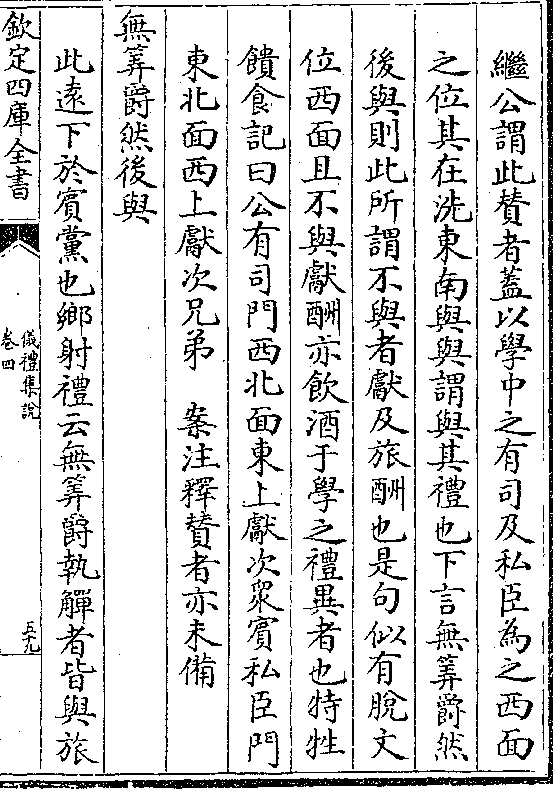 繼公謂此賛者蓋以學中之有司及私臣為之西面
之位其在洗東南與與謂與其禮也下言無筭爵然
後與則此所謂不與者獻及旅酬也是句似有脫文
位西面且不與獻酬亦飲酒于學之禮異者也特牲
饋食記曰公有司門西北面東上獻次衆賓私臣門
東北面西上獻次兄弟　案注釋賛者亦未備
無筭爵然後與
此遠下於賓黨也鄉射禮云無筭爵執觶者皆與旅
欽定四庫全書
儀禮集說
卷四
五九